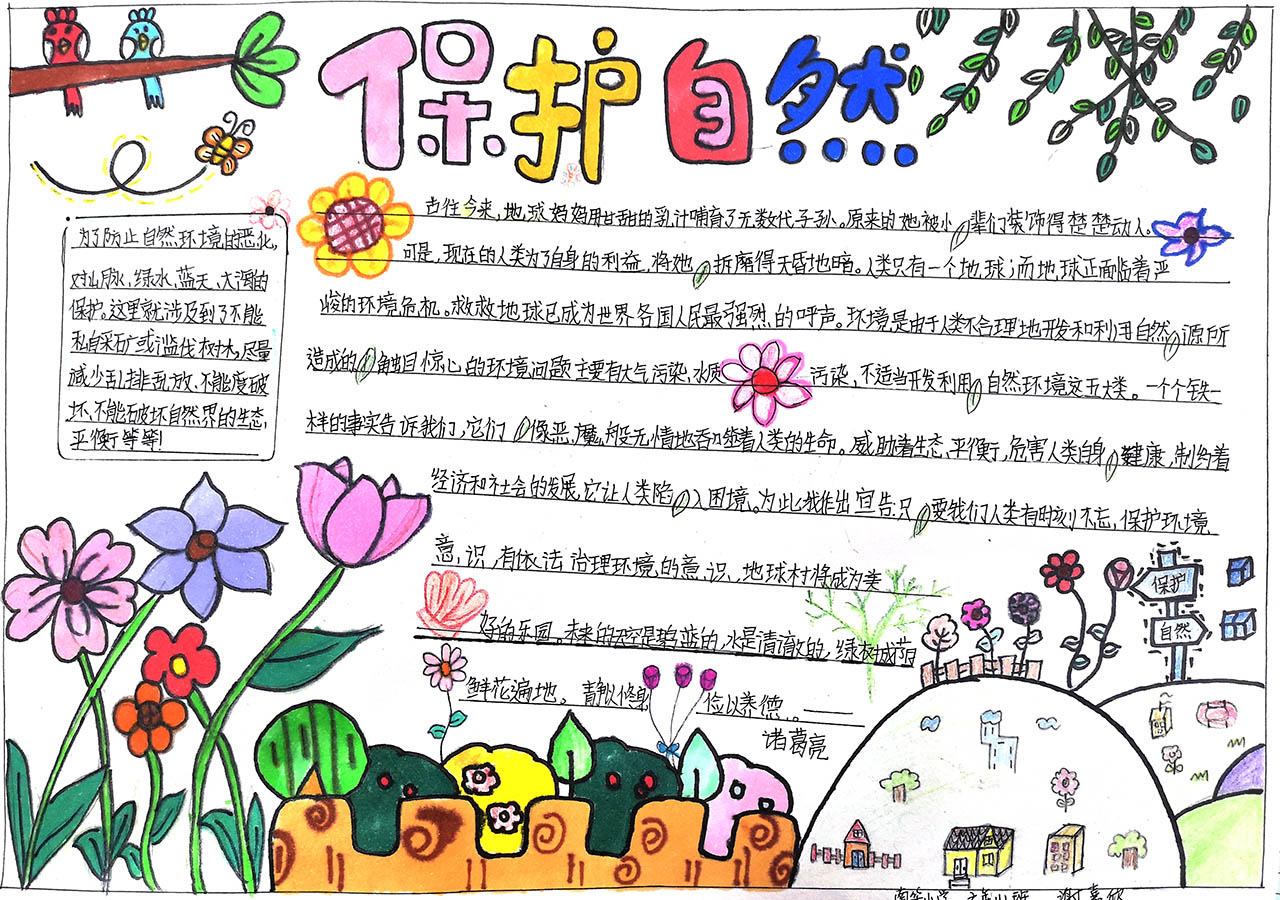 保护自然
为了防止自然环境的恶化,
对山脉,绿水,蓝天、大海的
保护。这里就涉及到了不能
私自采矿或滥伐树木,尽量
减少乱排乱放、不能度破
坏、不能破坏自然界的生态,
平衡等等!
古往今来,地球妈妈用甘甜的乳汁哺育了无数代子孙。原来的她被小辈们装饰得楚楚动人。
可是,现在的人类为了自身的利益,将她拆磨得天昏地暗。人类只有一个地球;而地球正面临着严
峻的环境危机。救救地球已成为世界各国人民最强烈的呼声。环境是由于人类不合理地开发和利用自然源所
造成的触目惊心的环境问题主要有大气污染,水质污染,不适当开发利用自然环境这五大类。一个个铁一
样的事实告诉我们,它们像恶魔般无情地吞噬着人类的生命。威胁着生态,平衡,危害人类自身健康,制约着
经济和社会的发展,它让人类陷入困境。为此我作出宣告只要我们人类有时刻不忘,保护环境
意识,有依法治理环境的意识,地球村将成为美
好的乐园。未来的天空是碧蓝的,水是清澈的,绿树成荫
鲜花遍地。静以修身 俭以养德。——
诸葛亮
保护
自然